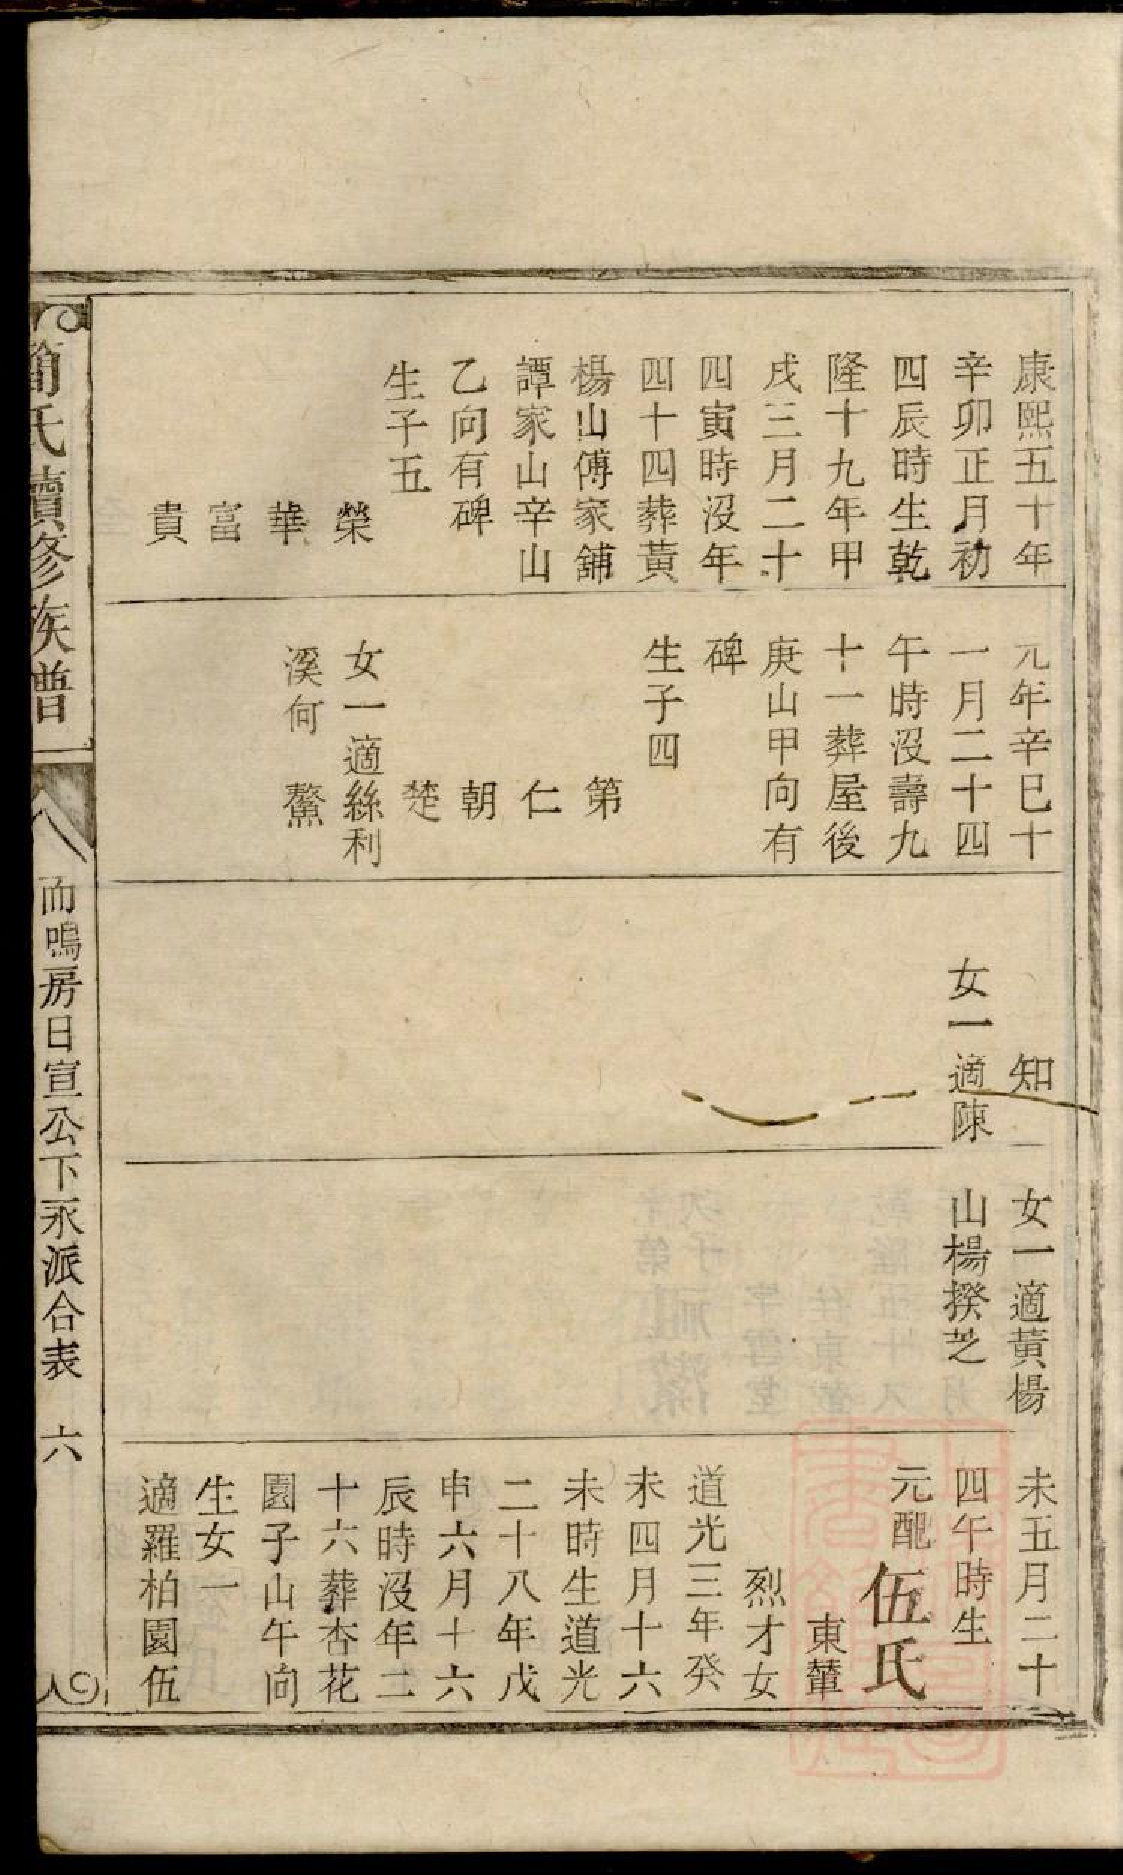 康熙五十年
辛卯正月初
四辰時生乾
隆十九年甲
戌三月二十
四寅時沒年
四十四葬黃
楊山傅家舖
譚家山辛山
乙向有碑
生子五
榮
華
富
貴
元年辛巳十
一月二十四
午時沒壽九
十一葬屋後
庚山甲向有
碑
生子四
第
仁
朝
楚
女一適絲利
溪何鰲
知
女一適陳
女一適黃楊
山楊揆芝
未五月二十
四午時生
元配伍氏
東輦
烈才女
道光三年癸
未四月十六
未時生道光
二十八年戊
申六月十六
辰時沒年二
十六葬杏花
園子山午向
生女一
適羅柏園伍
簡氏續修族譜
而鳴房日宣公下永派合表 六